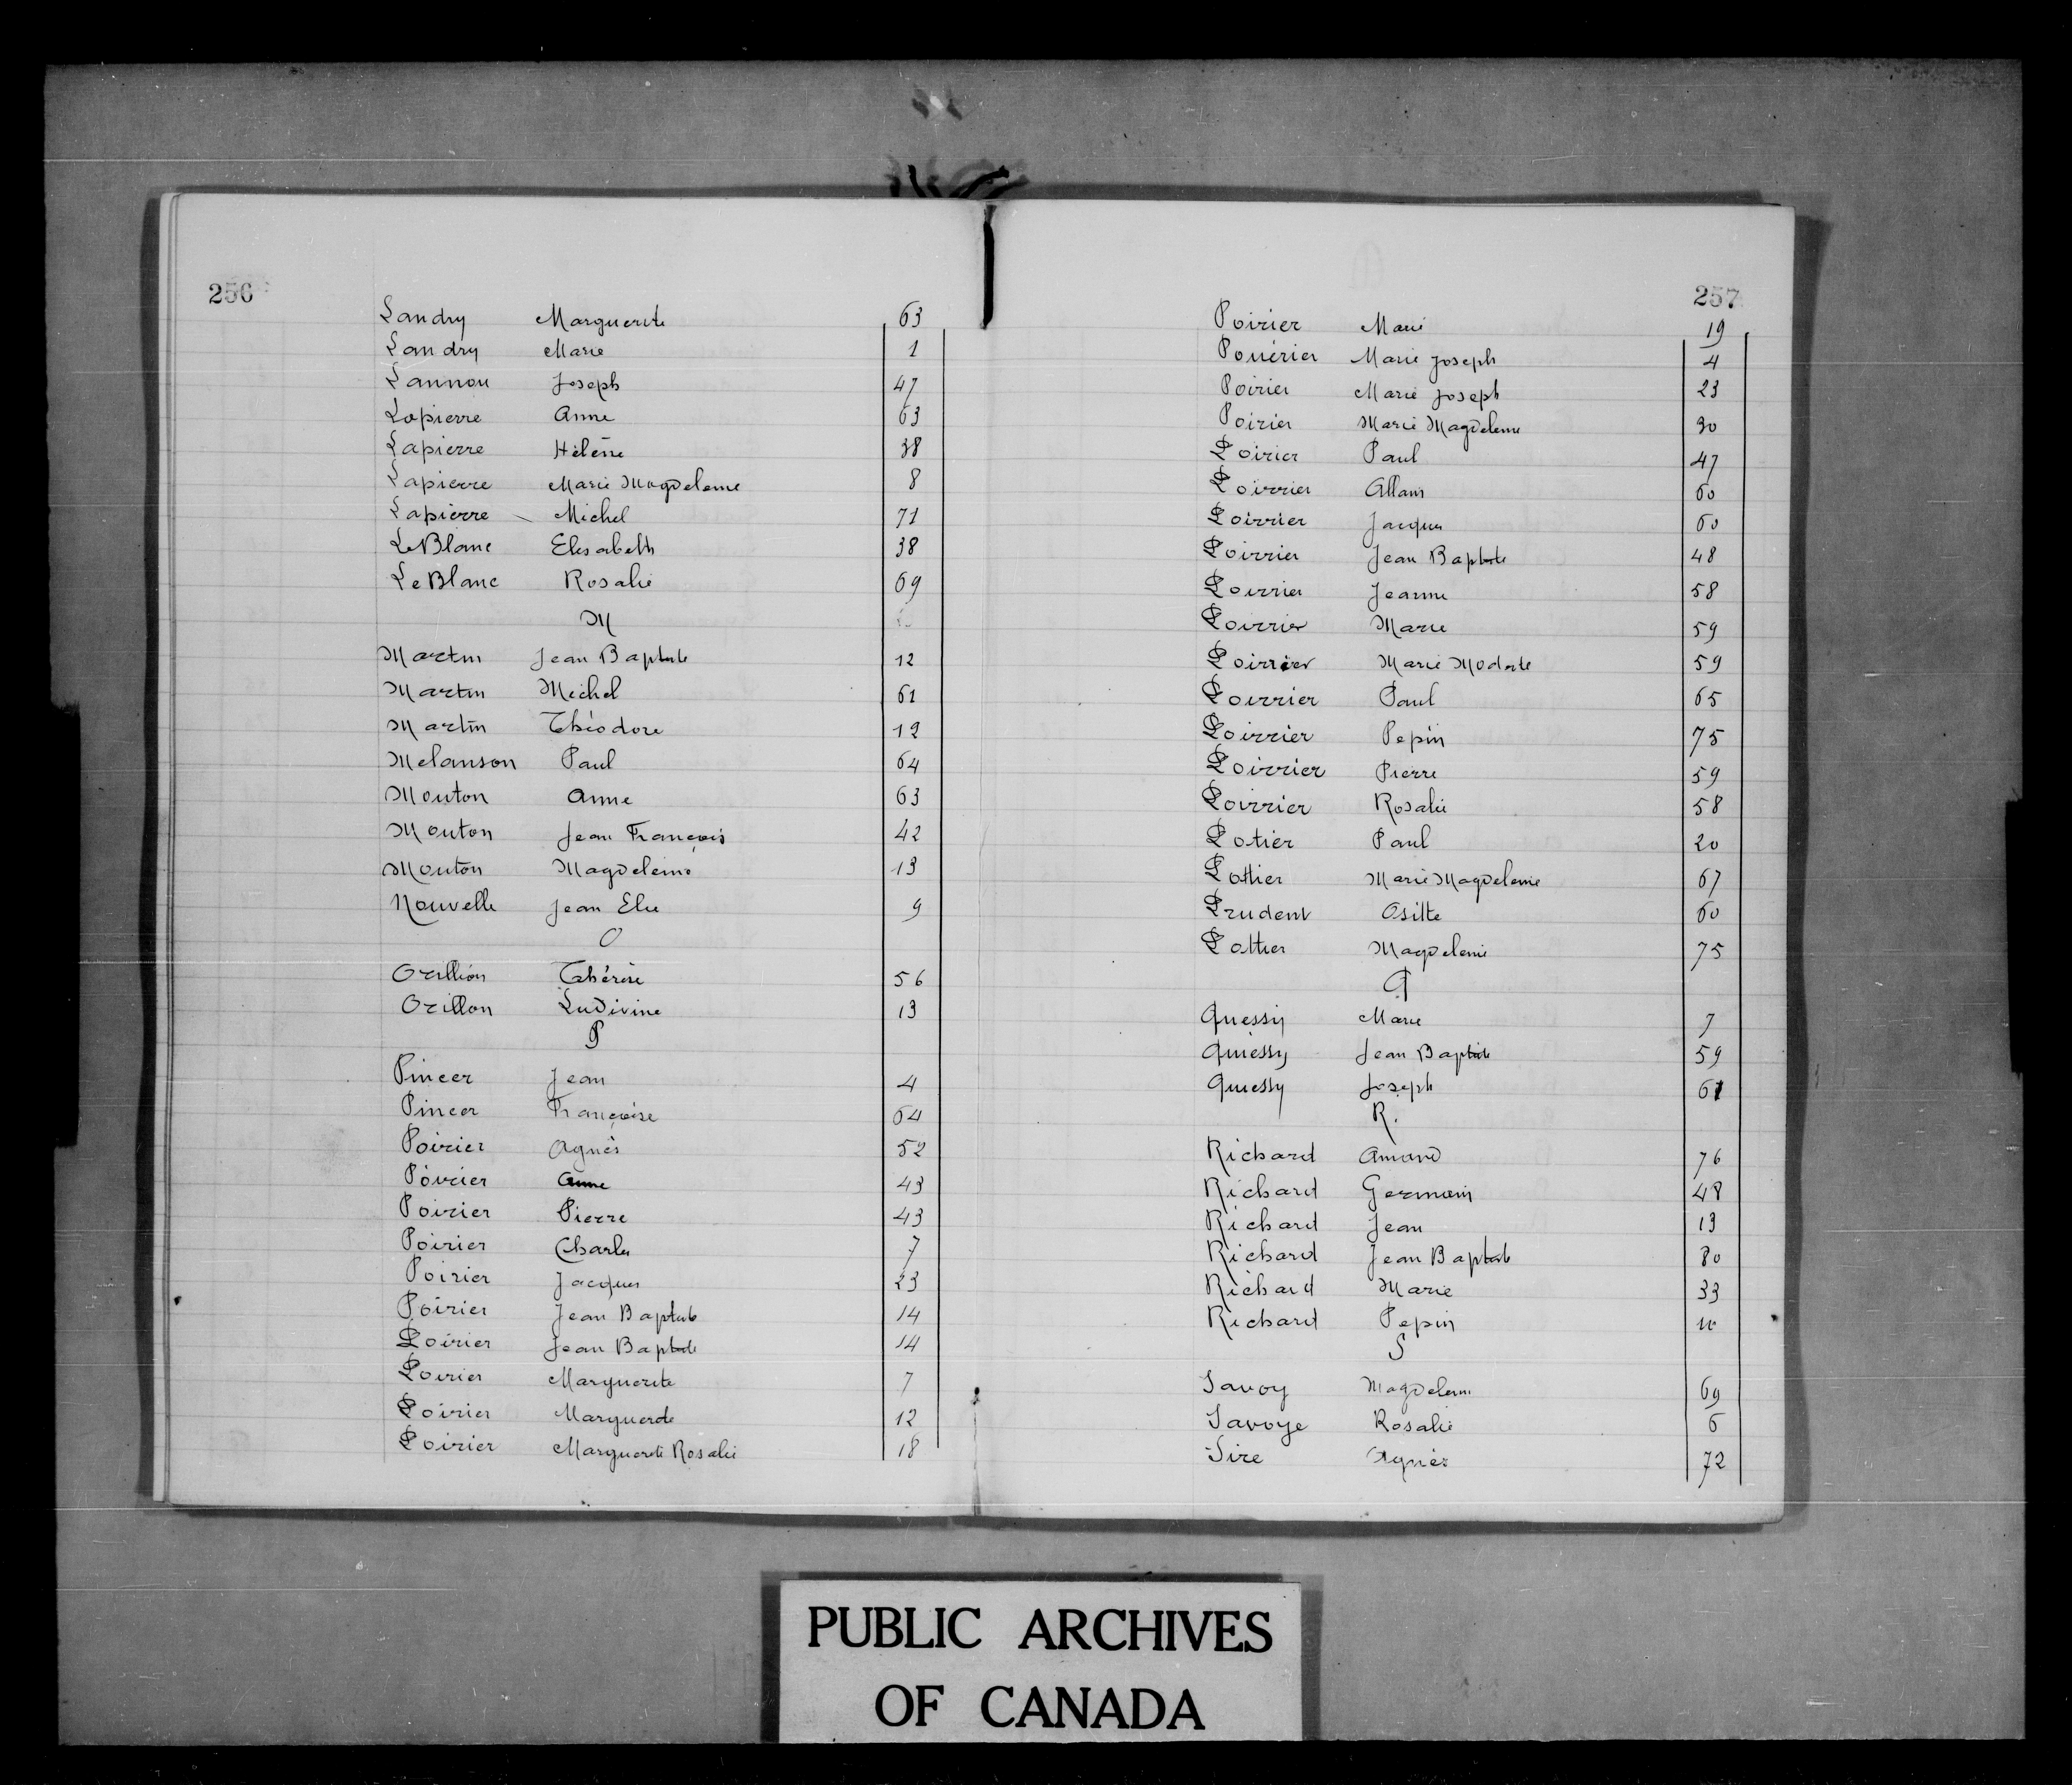 256
Landry Marguerite 63
Landry Marie 1
Lannou Joseph 47
Lapierre Anne 63
Lapierre Hélène 38
Lapierre Marie Magdeleine 8
Lapierre Michel 71
LeBlanc Elisabeth 38
LeBlanc Rosalie 69
M
Martin Jean Baptiste 12
Martin Michel 61
Martin Théodore 12
Melanson Paul 64
Mouton Anne 63
Mouton Jean François 42
Mouton Magdeleine 13
Nouvelle Jean Elie 9
O
Orillion Thérèse 56
Orillon Ludivine 13
P
Pincer Jean 4
Pincer Françoise 64
Poirier Agnès 52
Poirier Anne 43
Poirier Pierre 43
Poirier Charles 7
Poirier Jacques 23
Poirier Jean Baptiste 14
Poirier Jean Baptiste 14
Poirier Marguerite 7
Poirier Marguerite 12
Poirier Marguerite Rosalie 18
257
Poirier Marie 19
Pouérier Marie Joseph 4
Poirier Marie Joseph 23
Poirier Marie Magdeleine 30
Poirier Paul 47
Poirrier Allain 60
Poirrier Jacques 60
Poirrier Jean Baptiste 48
Poirrier Jeanne 58
Poirrier Marie 59
Poirrier Marie Modeste 59
Poirrier Paul 65
Poirrier Pepin 75
Poirrier Pierre 59
Poirrier Rosalie 58
Potier Paul 20
Pothier Marie Magdeleine 67
Prudent Ositte 60
Pothier Magdeleine 75
Q
Quessy Marie 7
Quiessy Jean Baptiste 59
Quiessy Joseph 61
R.
Richard Amand 76
Richard Germain 48
Richard Jean 13
Richard Jean Baptiste 80
Richard Marie 33
Richard Pepin
S
Savoy Magdeleine 69
Savoye Rosalie 6
Sire Agnès 72
PUBLIC ARCHIVES
OF CANADA